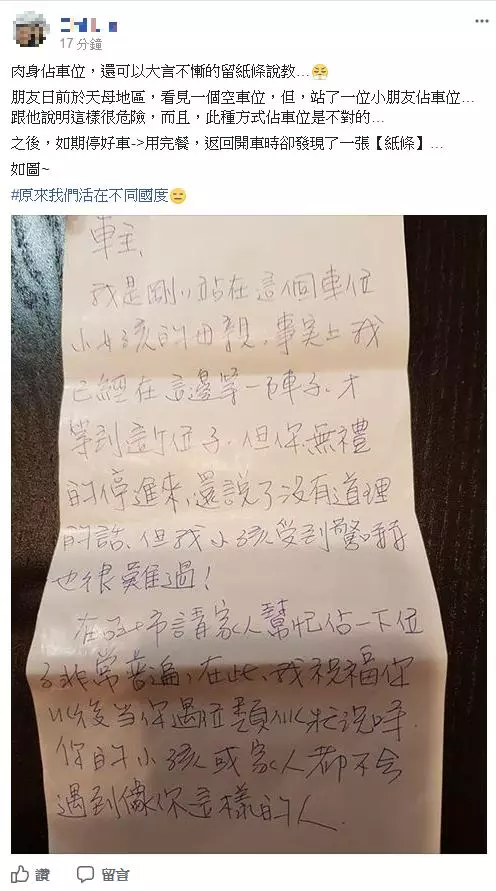 17 分鐘
肉身佔車位，還可以大言不慚的留紙條說教...
朋友日前於天母地區，看見一個空車位，但，站了一位小朋友佔車位...
跟他說明這樣很危險，而且，此種方式佔車位是不對的...
之後，如期停好車->用完餐，返回開車時卻發現了一張【紙條】...
如圖~
#原來我們活在不同國度
車主、
我是剛剛站在這個車位
小女孩的母親、事實上我
已經在這邊等一下車子、才
等到這位子、但你無禮
的停進來、還說了沒有道理
的話、但我小孩受到驚嚇
也很難過！
在 市請家人幫忙佔一下位
子非常普遍、在此、我祝福你
以後當你遇並類似狀況時、
你的小孩或家人都不會
遇到像你這樣的人、
讚 留言